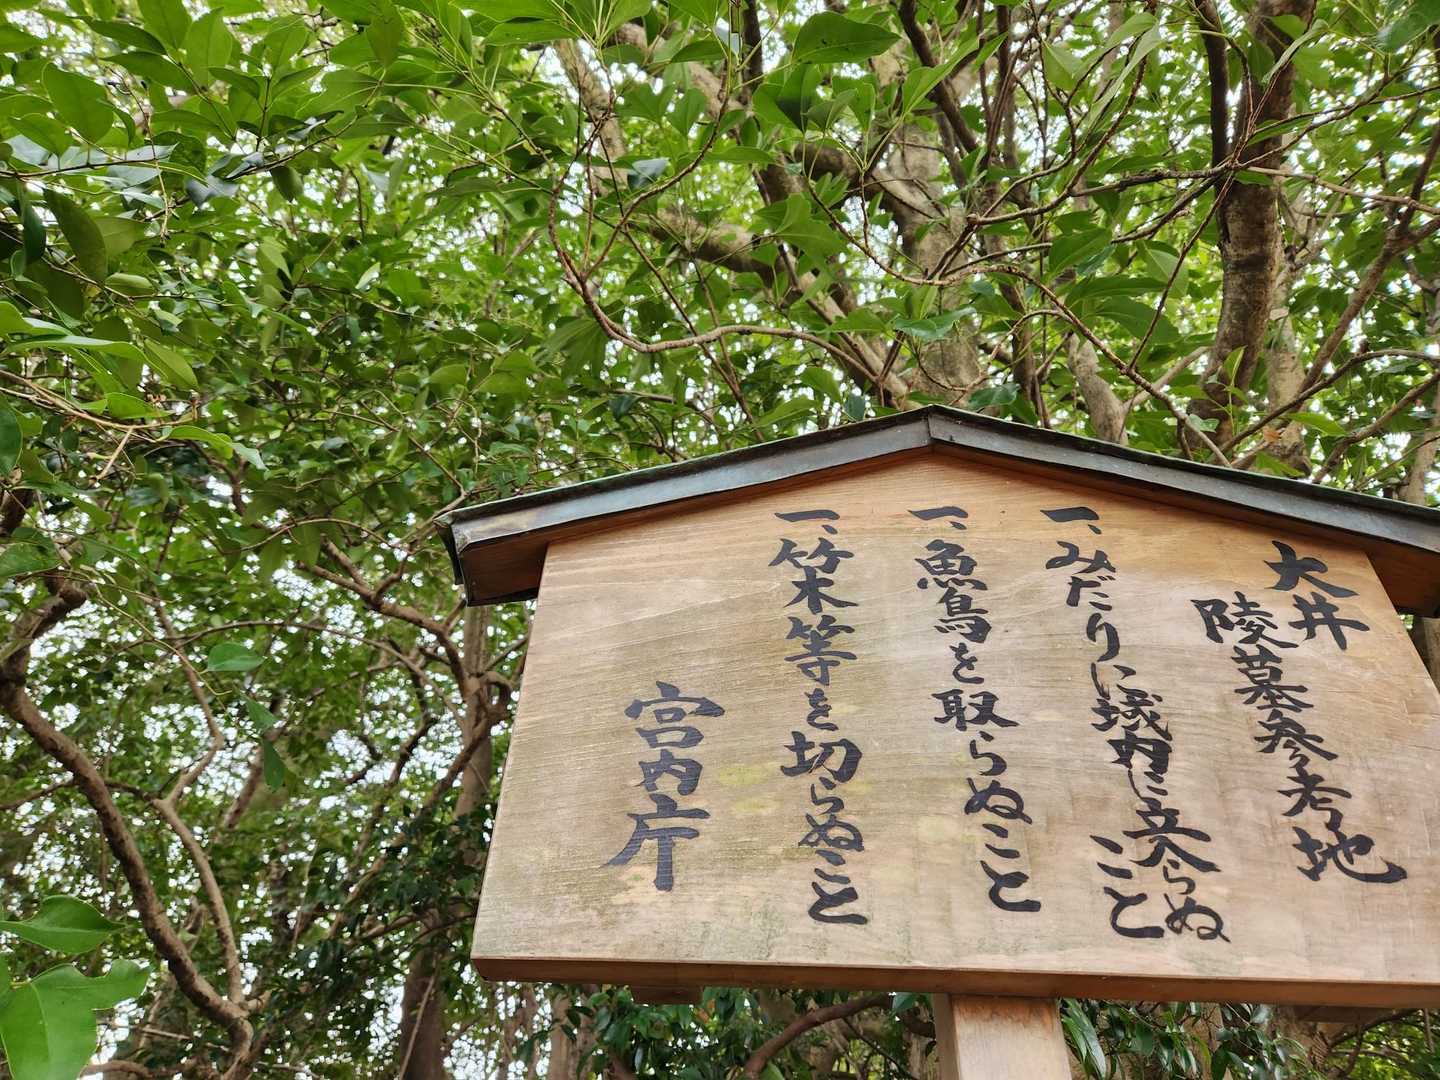 大井
陵墓参考地
一、みだりに域内に立入らぬ
こと
一、魚鳥を取らぬこと
一、竹木等を切らぬこと
宮内庁